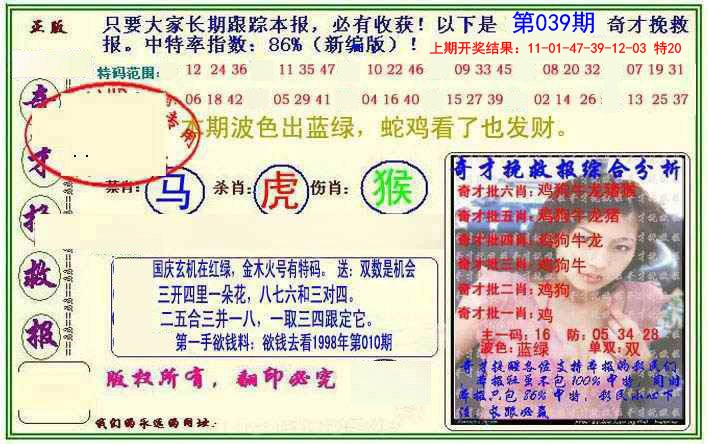 正版
只要大家长期跟踪本报，必有收获！以下是 第039期 奇才挽救
报。中特率指数：86%（新编版）！ 上期开奖结果：11-01-47-39-12-03 特20
特码范围： 12 24 36 11 35 47 10 22 46 09 33 45 08 20 32 07 19 31
06 18 42 05 29 41 04 16 40 15 27 39 02 14 26 13 25 37
本期波色出蓝绿，蛇鸡看了也发财。
禁肖： 马 杀肖： 虎 伤肖： 猴
国庆玄机在红绿，金木火号有特码。 送：双数是机会
三开四里一朵花，八七六和三对四。
二五合三并一八，一取三四跟定它。
第一手欲钱料：欲钱去看1998年第010期
版权所有，翻印必究
我们的永远的网址：
奇
才
救
报
奇才挽救报综合分析
奇才批六肖：鸡狗牛龙猪猴
奇才批五肖：鸡狗牛龙猪
奇才批四肖：鸡狗牛龙
奇才批三肖：鸡狗牛
奇才批二肖：鸡狗
奇才批一肖：鸡
主一码：16 防：05 34 28
波色：蓝绿 单双：双
奇才挽救各位支持本报的彩民们
本报虽不包100%中特，同时
本报只包86%中特，彩民小心下
注，长跟必赢